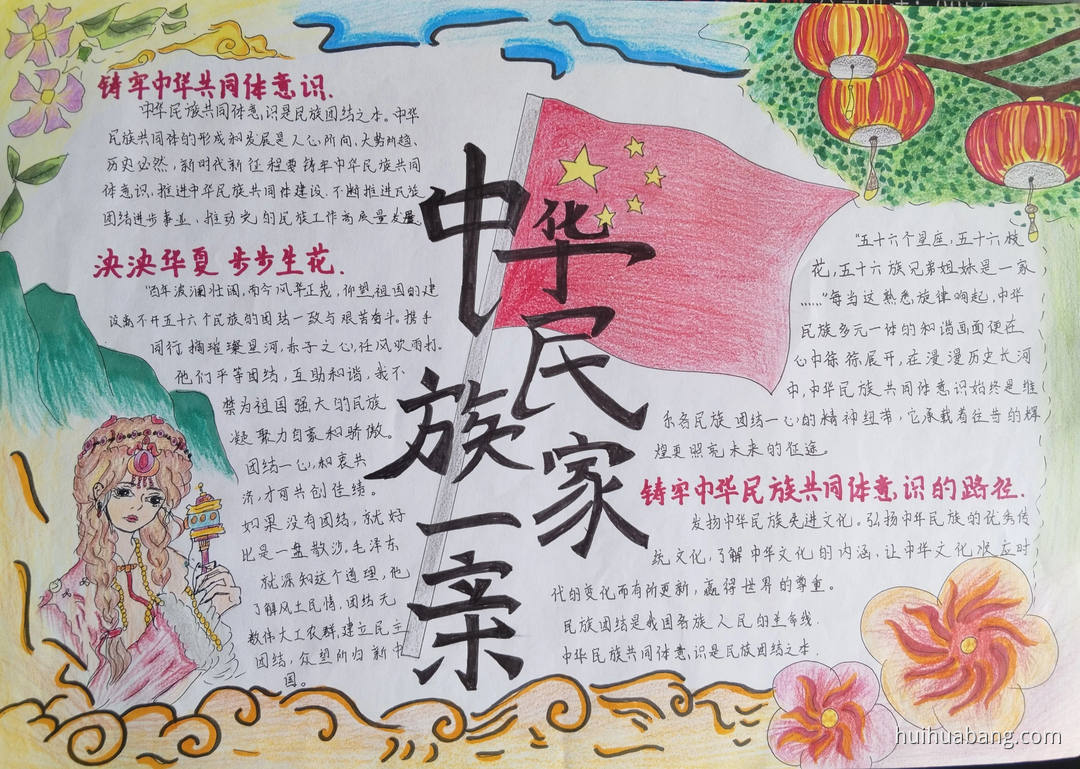 铸牢中华共同体意识.
中华民族共同体意识是民族团结之本。中华
民族共同体的形成和发展是人心所向、大势所趋、
历史必然，新时代新征程要铸牢中华民族共同
体意识，推进中华民族共同体建设.不断推进民族
团结进步事业、推动党的民族工作高质量发展
泱泱华夏 步步生花.
"百年波澜壮阔，而今风华正茂，仰望祖国的建
设离不开五十六个民族的团结一致与艰苦奋斗。携手
同行，摘璀璨星河，赤子之心，任风吹雨打.
他们平等团结，互助和谐，我不
禁为祖国强大的民族
凝聚力自豪和骄傲。
团结一心，和衷共
济，才可共创佳绩。
如果没有团结，就好
比是一盘散沙。毛泽东
就深知这个道理，他
了解风土民情，团结无
数伟大工农群，建立民主
团结，众望所归新中
国。
中华民族一家亲
"五十六个星座，五十六枝
花，五十六族兄弟姐妹是一家
……"每当这熟悉旋律响起，中华
民族多元一体的和谐画面便在
心中徐徐展开，在漫漫历史长河
中，中华民族共同体意识始终是维
系各民族团结一心的精神纽带，它承载着往昔的辉
煌更照亮未来的征途。
铸牢中华民族共同体意识的路径.
发扬中华民族先进文化。弘扬中华民族的优秀传
统文化，了解中华文化的内涵，让中华文化顺应时
代的变化而有所更新，赢得世界的尊重。
民族团结是我国各族人民的生命线.
中华民族共同体意识是民族团结之本.
huihuabang.com